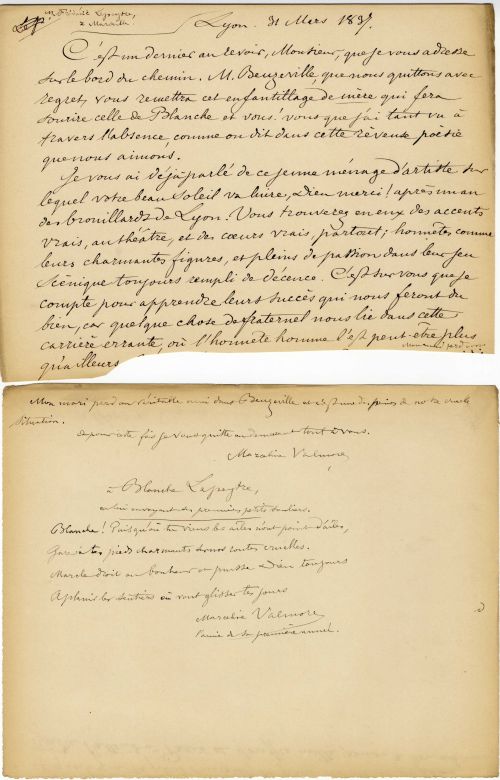 à Marseille.
Lyon. 31 Mars 1837.
C'est un dernier au revoir, Monsieur, que je vous adresse
sur le bord du chemin. M. Beuzeville, que nous quittons avec
regret, vous remettra cet enfantillage de mère qui fera
sourire celle de Blanche et vous. vous que j'ai tant vu à
travers l'absence, comme on dit dans cette rêveuse poésie
que nous aimons.
Je vous ai déjà parlé de ce jeune ménage d'artiste sur
lequel votre beau soleil va luire, Dieu merci! après un an
des brouillards de Lyon. Vous trouverez en eux des accents
vrais, au théâtre, et des cœurs vrais, partout; honnêtes, comme
leurs charmantes figures, et pleins de passion dans leur jeu
scénique toujours rempli de décence. C'est sur vous que je
compte pour apprendre leurs succès qui nous feront du
bien, car quelque chose de fraternel nous lie dans cette
carrière errante, où l'honnête homme l'est peut-être plus
qu'ailleurs
Mon mari perd un véritable ami dans Beuzeville et c'est une des peines de notre cruelle
situation.
pour cette fois je vous quitte en demeurant tout à vous.
Marceline Valmore
à Blanche Lapeytre,
en lui envoyant ses premiers petits souliers.
Blanche! Puisqu'où tu viens les ailes n'ont point d'ailes,
Gare à tes pieds charmants sur nos routes cruelles.
Marche droit au bonheur et puisse Dieu toujours
Aplanir les sentiers où vont glisser tes jours
Marceline Valmore
l'amie de sa première année.